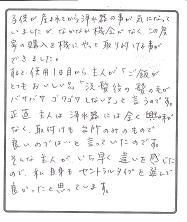 子供が産まれてから浄水器の事が気になって
いましたが、なかなか機会がなく、この度
家の購入を機にやっと取り付ける事が
できました。
そして、使用1日目から主人が「ご飯が
とてもおいしい。」「洗髪後の髪の毛が
バサバサゴワゴワしない。」と言うのです。
正直主人は浄水器には全く興味が
なく、取付けも台所のみのもので
良いのでは…と言っていたのです。
そんな主人がいち早く違いを感じた
ので、私自身もセントラルタイプを選んで
良かったと思っています。